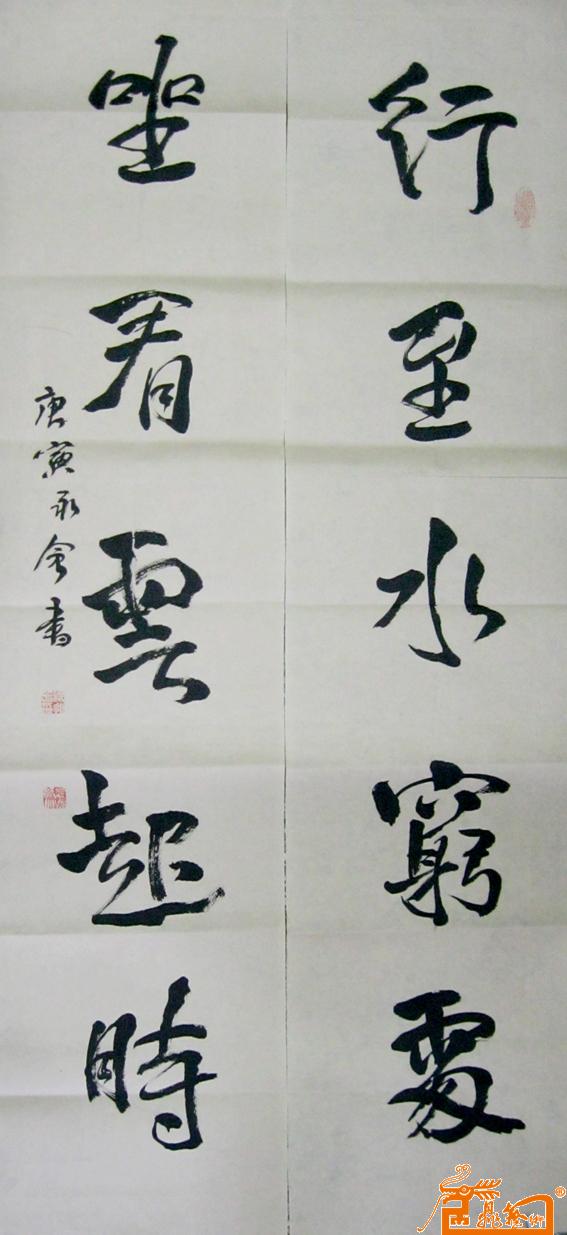 行至水窮處
坐看雲起時
庚寅永會書